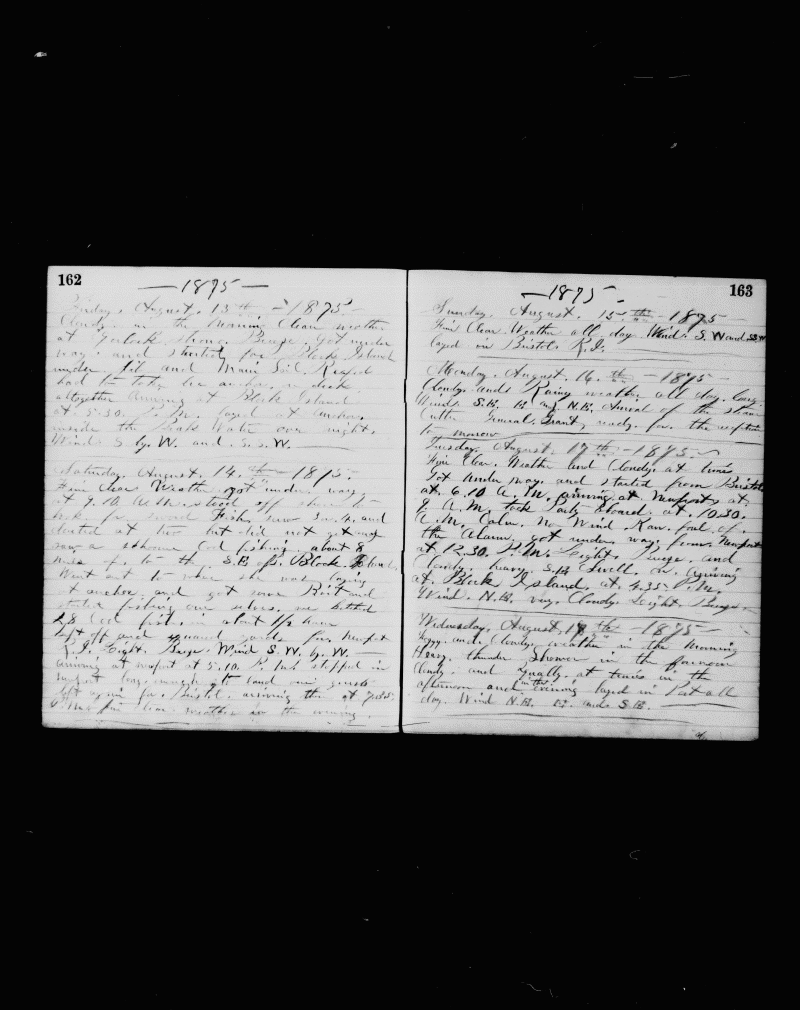 162
— 1875 —
Friday, August, 13th, — 1875 —
Cloudy in the Morning Clear weather
at 9 o'clock strong Breeze. Got under
way. and started for Block Island
under Jib and Main Sail. Reefed
had to take in anchor on deck
altogether Arriving at Block Island
at 5.30. P. M. layed at anchor,
inside the Break Water over night.
Wind. S by. W. and S.S.W.
Saturday, August, 14, th — 1875.
Fine Clear Weather got under way
at 9.10. A.M. stood off shore to
look for sword Fish, saw and
darted at two but did not get any
saw a schooner Cod fishing about 8
miles of, to the S.E. of Block Island
Went out to where she was laying
at anchor and got some Bait and
started fishing our selves, we
28 Cod fish, in about 1/2 hour
left off and squared yards for Newport
R.I. Light. Breeze Wind S. W. by. W. —
arriving at newport at 5.10. P. M. stopped in
long enough to land our guests
left again for Bristol, arriving there at
P. M. fine clear weather in the evening.
163
— 1875 —
Sunday, August, 15, th — 1875 —
Fine Clear Weather all day Wind. S. W and S.S.W.
layed in Bristol R.I.
Monday, August, 16, th — 1875 —
Cloudy and Rainy weather all day long.
Winds. S.E. E. and N.E. Arrival of the steam
Cutter General, Grant, ready for the reception
to morrow
Tuesday, August, 17 th — 1875 —
Fine Clear. Weather and Cloudy at times
Got under way. and started from Bristol
at 6.10 A. M. arriving at Newport, at
8. A.M. took Party aboard. at. 10.30.
A.M. Calm. No Wind Ran. foul of
the Alarm, got under way. from. Newport
at 12.30. P.M. Light, Breeze. and
Cloudy. heavy. S.E Swell on. arriving
at Block Island at. 4.35 P.M.
Wind. N.E. very Cloudy Light Breeze
Wednesday, August, 18 th — 1875 —
Foggy and Cloudy weather in the Morning
Heavy, thunder shower in the forenoon
Cloudy. and Squally, at times in the
afternoon and in the evening layed in Port all
day. Wind N.E. E. and. S.E.